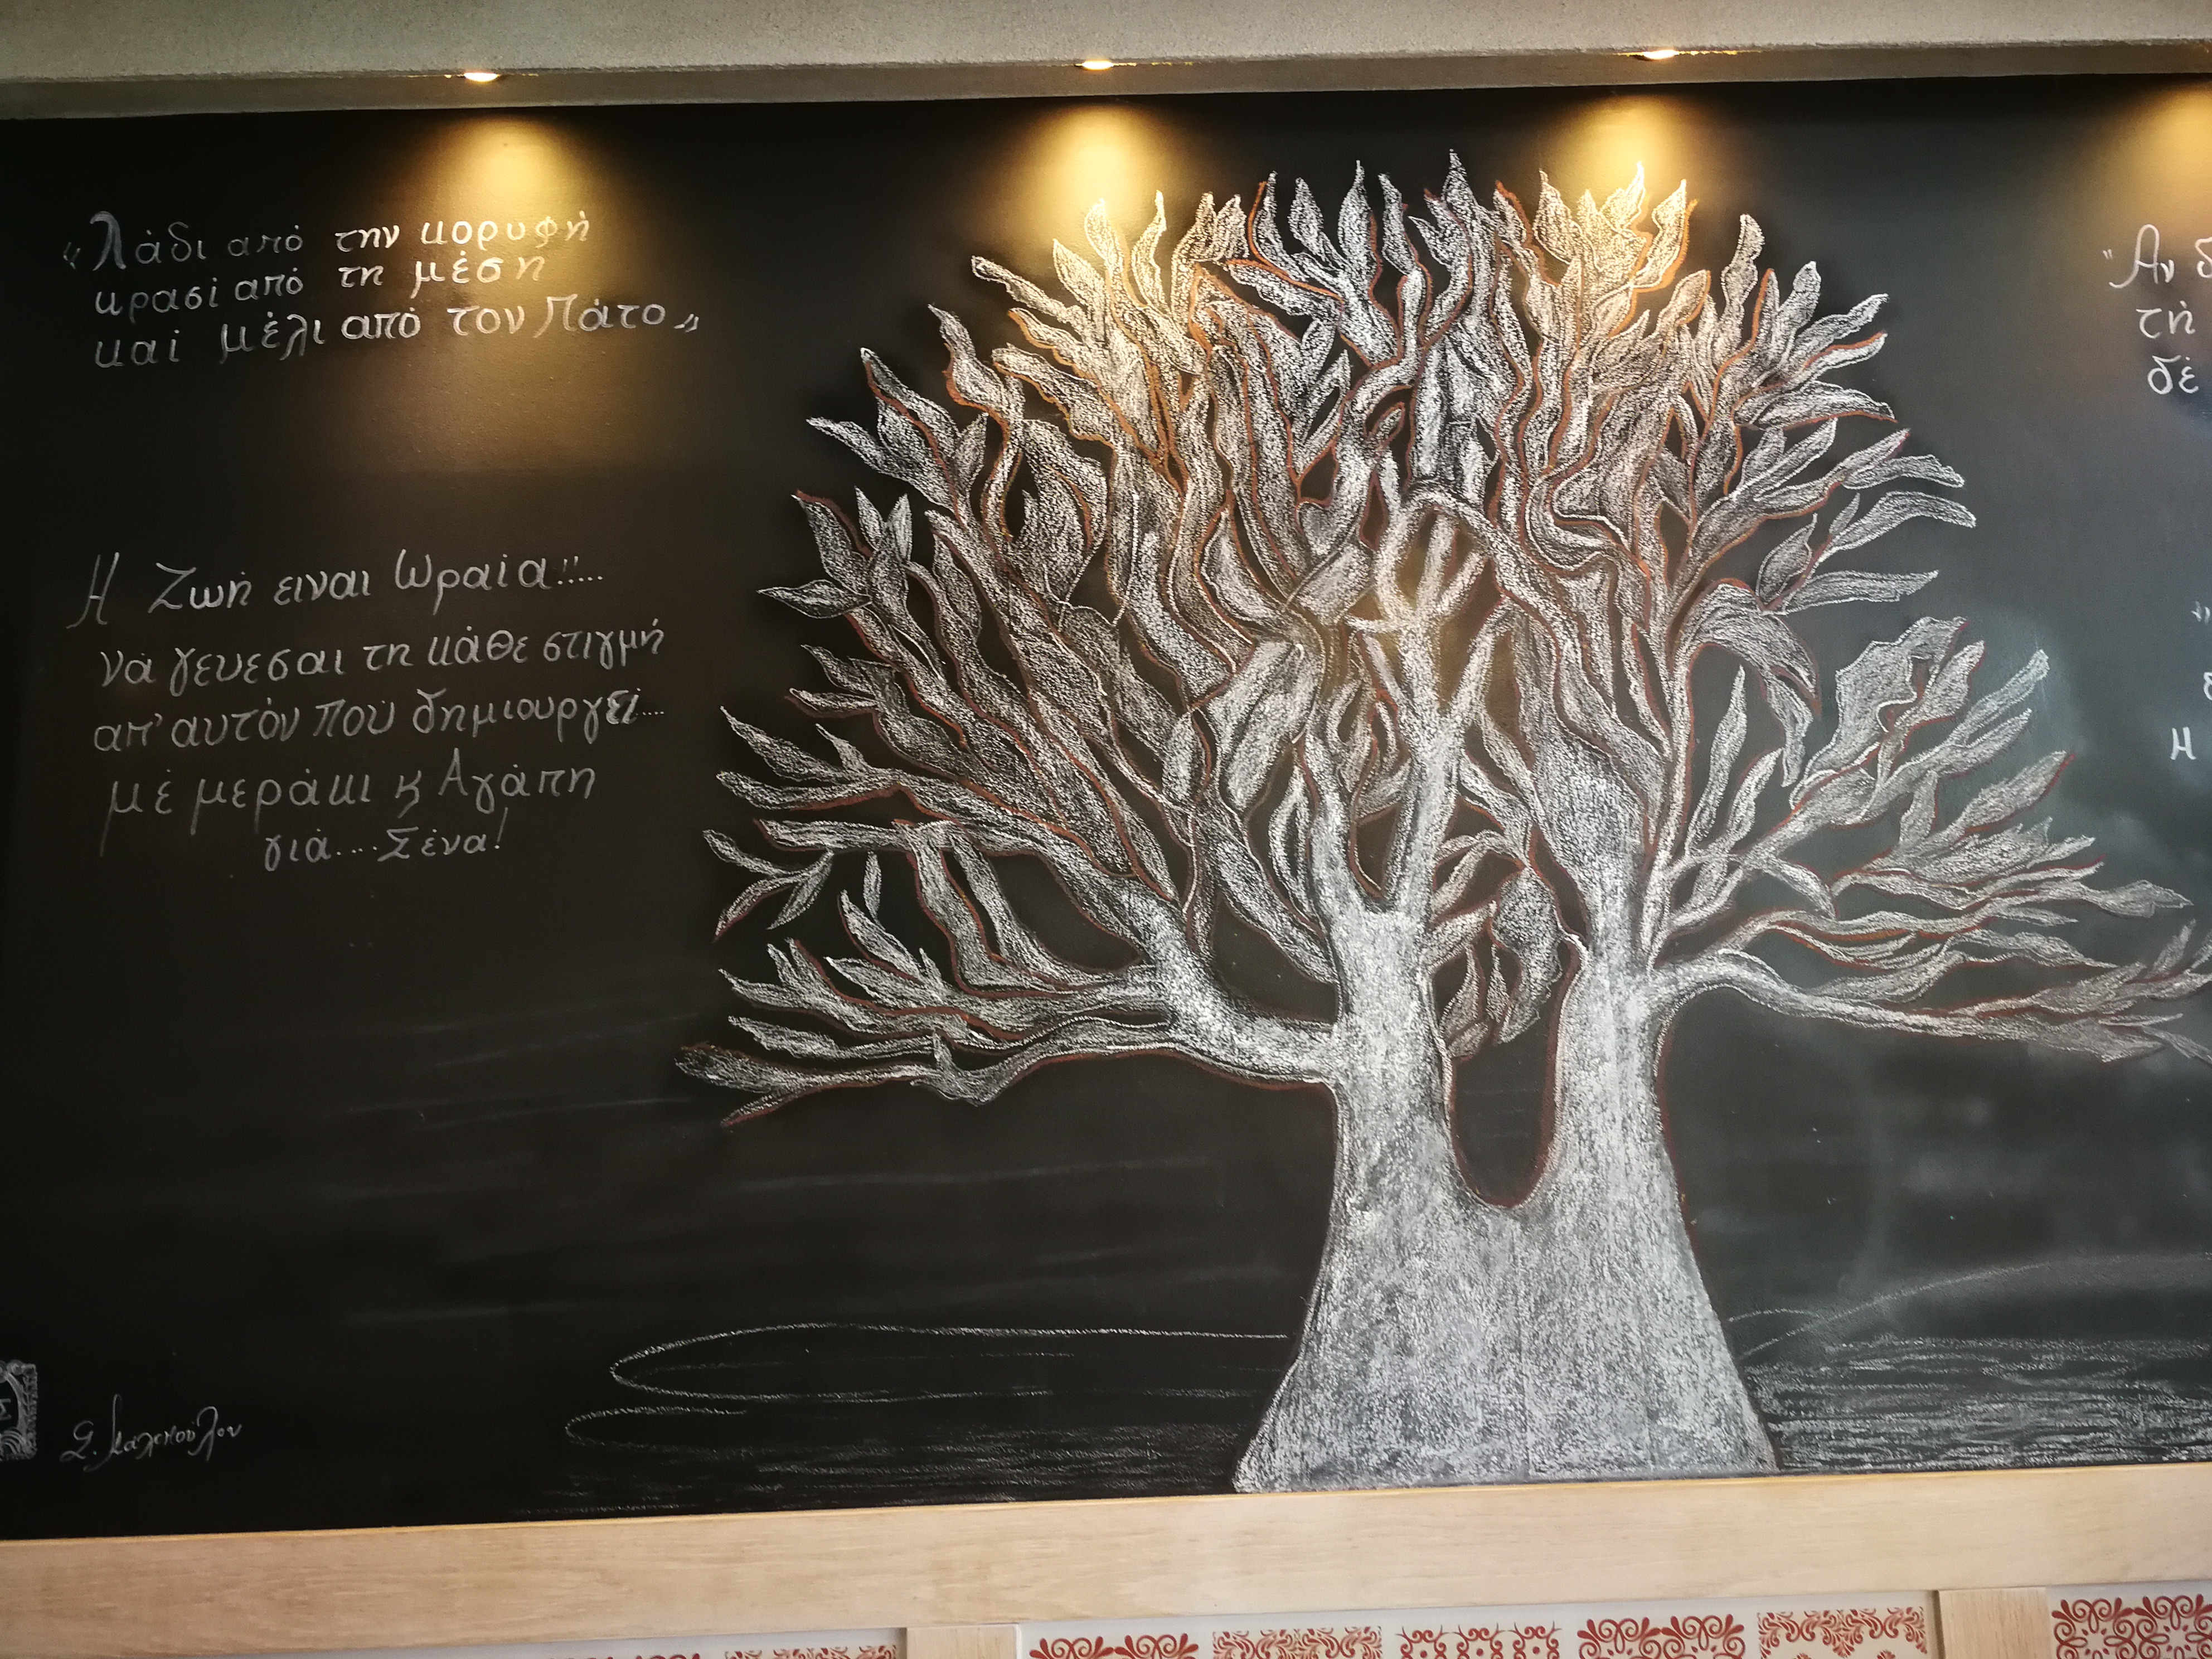 «Λάδι από την κορυφή
κρασί από τη μέση
και μέλι από τον Πάτο„
Η Ζωή ειναι Ωραία!!...
νά γευεσαι τη κάθε στιγμή
απ' αυτόν πού δημιουργεί....
μέ μεράκι κ Αγάπη
γιά.... Σένα!
"Αν δ
τή
δέ
Η